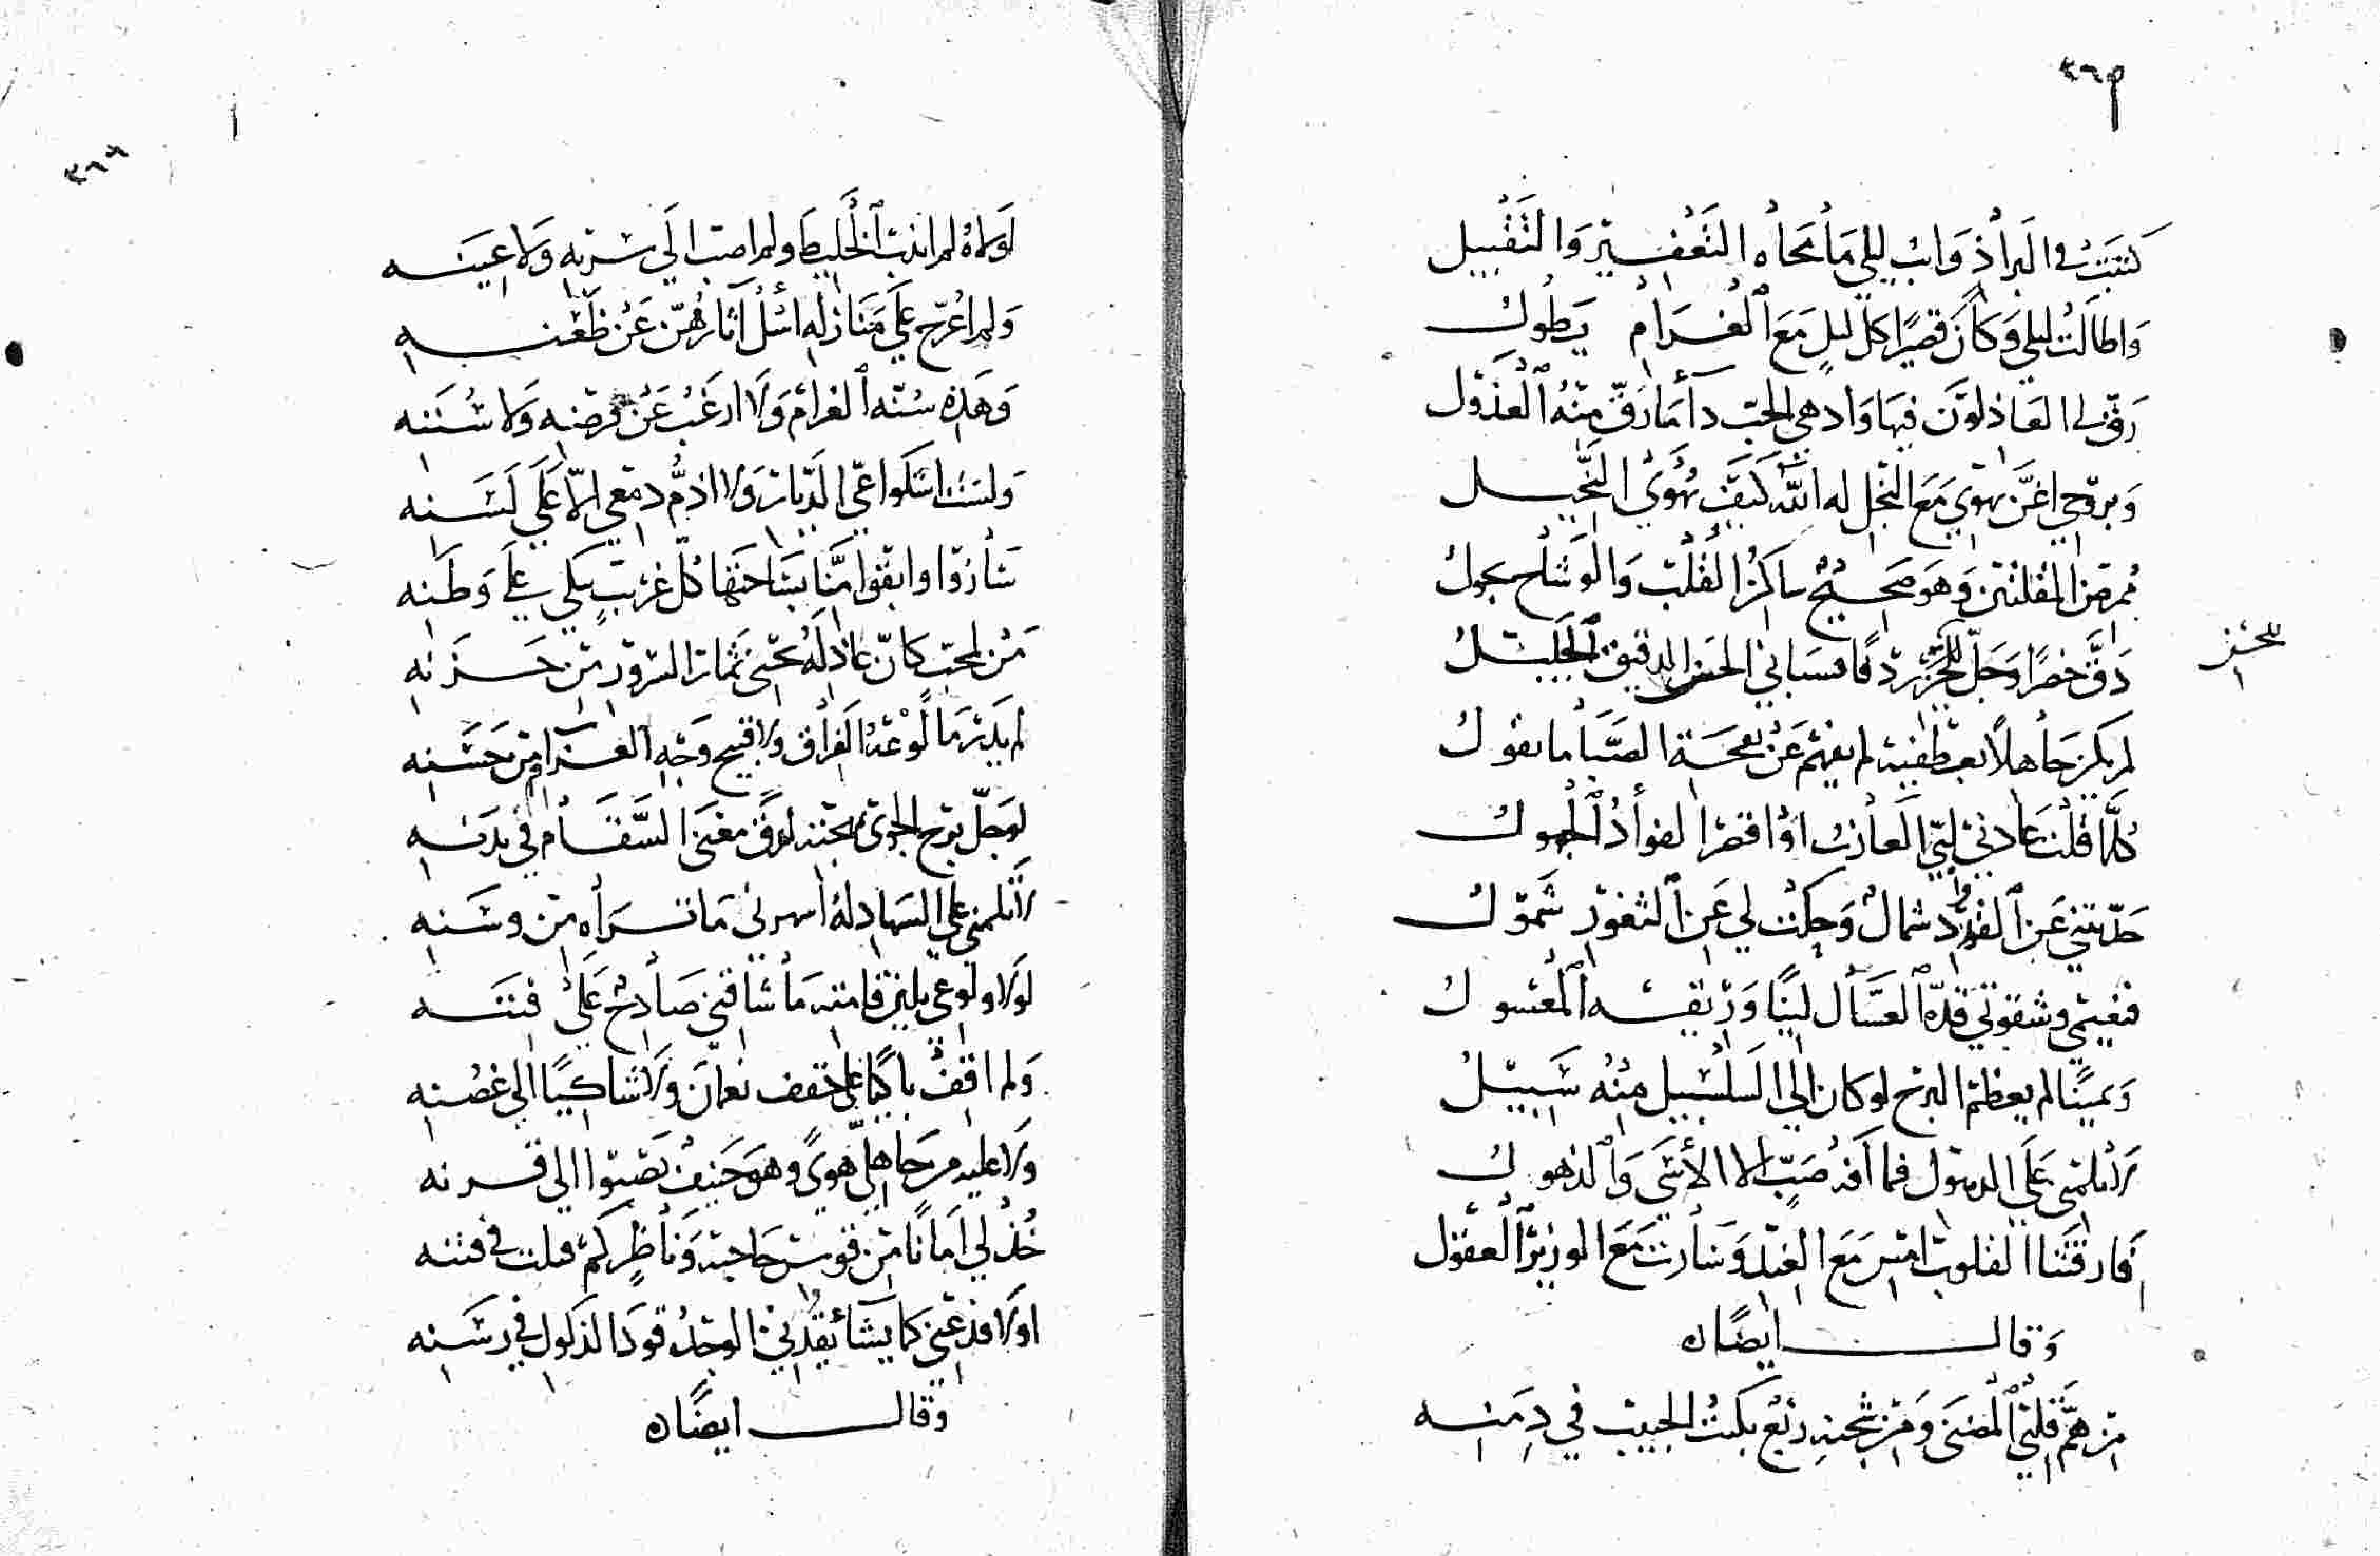 ٣٦٥
كتبت في الثرا ذوائب ليلي ما محاه التعفير والتقبيل
واطالت ليلي وكان قصيرا كل ليل مع الغرام يطول
رق لي العاذلون فيها وادهي الحب دآ ما رق منه العذول
وبروحي اغن يهوي مع البخل له الله كيف يهوي البخيل
ممرض المقلتين وهو صحيح ساكن القلب والوشاح يجول
دق خصرا وجل ردفا فسباني الحسن الدقيق الجليل
للحسن
لم يكن جاهلا بعطفيه لم يفهم عن نفحة الصبا ما نقول
كلما قلت عادني لبي العازب او اقصر الفواد الجهول
حدثتني عن القدود شمال وحكت لي عن الثغور شمول
فنعيمي وشقوتي قده العسال لينا وريقه المعسول
ويمينا لم يعظم البرح لو كان الي السلسبيل منه سبيل
لا تلمني علي الذهول فما آفة صب الا الأسي والذهول
فارقتنا القلوب امس مع الغيد وسارت مع الوزير العقول
وقال ايضا ه
من هم قلبي المضنى ومن شجنه ربع بكيت الحبيب في دمنه
٣٦٦
لولاه لم اندب الخليط ولم اصب الي سربه ولا عينه
ولم اعرج علي منازله اسئل آثارهن عن ظعنه
وهذه سنة الغرام ولا ارغب عن فرضه ولا سننه
ولست اشكوا عي الديار ولا اذم دمعي الا علي لسنه
ساروا وابقوا منا بساحتها كل غريب يبكي علي وطنه
من لمحب كان عاذله يجني ثمار السرور من حزنه
لم يدر ما لوعة الفراق ولا قبيح وجه الغرام من حسنه
لو حل برح الجوى بمهجته لرق مغنى السقام في بدنه
لا تلمني علي السهاد له اسهرني ما تراه من وسنه
لولا ولوعي بلين قامته ما شاقني صادح علي فننه
ولم اقف باكيا علي حقف نعمان ولا شاكيا الي غصنه
ولا عليه من جاهلي هوى وهو حنيف تصبوا الي قرنه
خذ لي امانا من قوس حاجبه وناظر كم قلت في فتنه
اولا فدعني كما يشا يقدني الوجد قود الذلول في رسنه
وقال ايضا ه